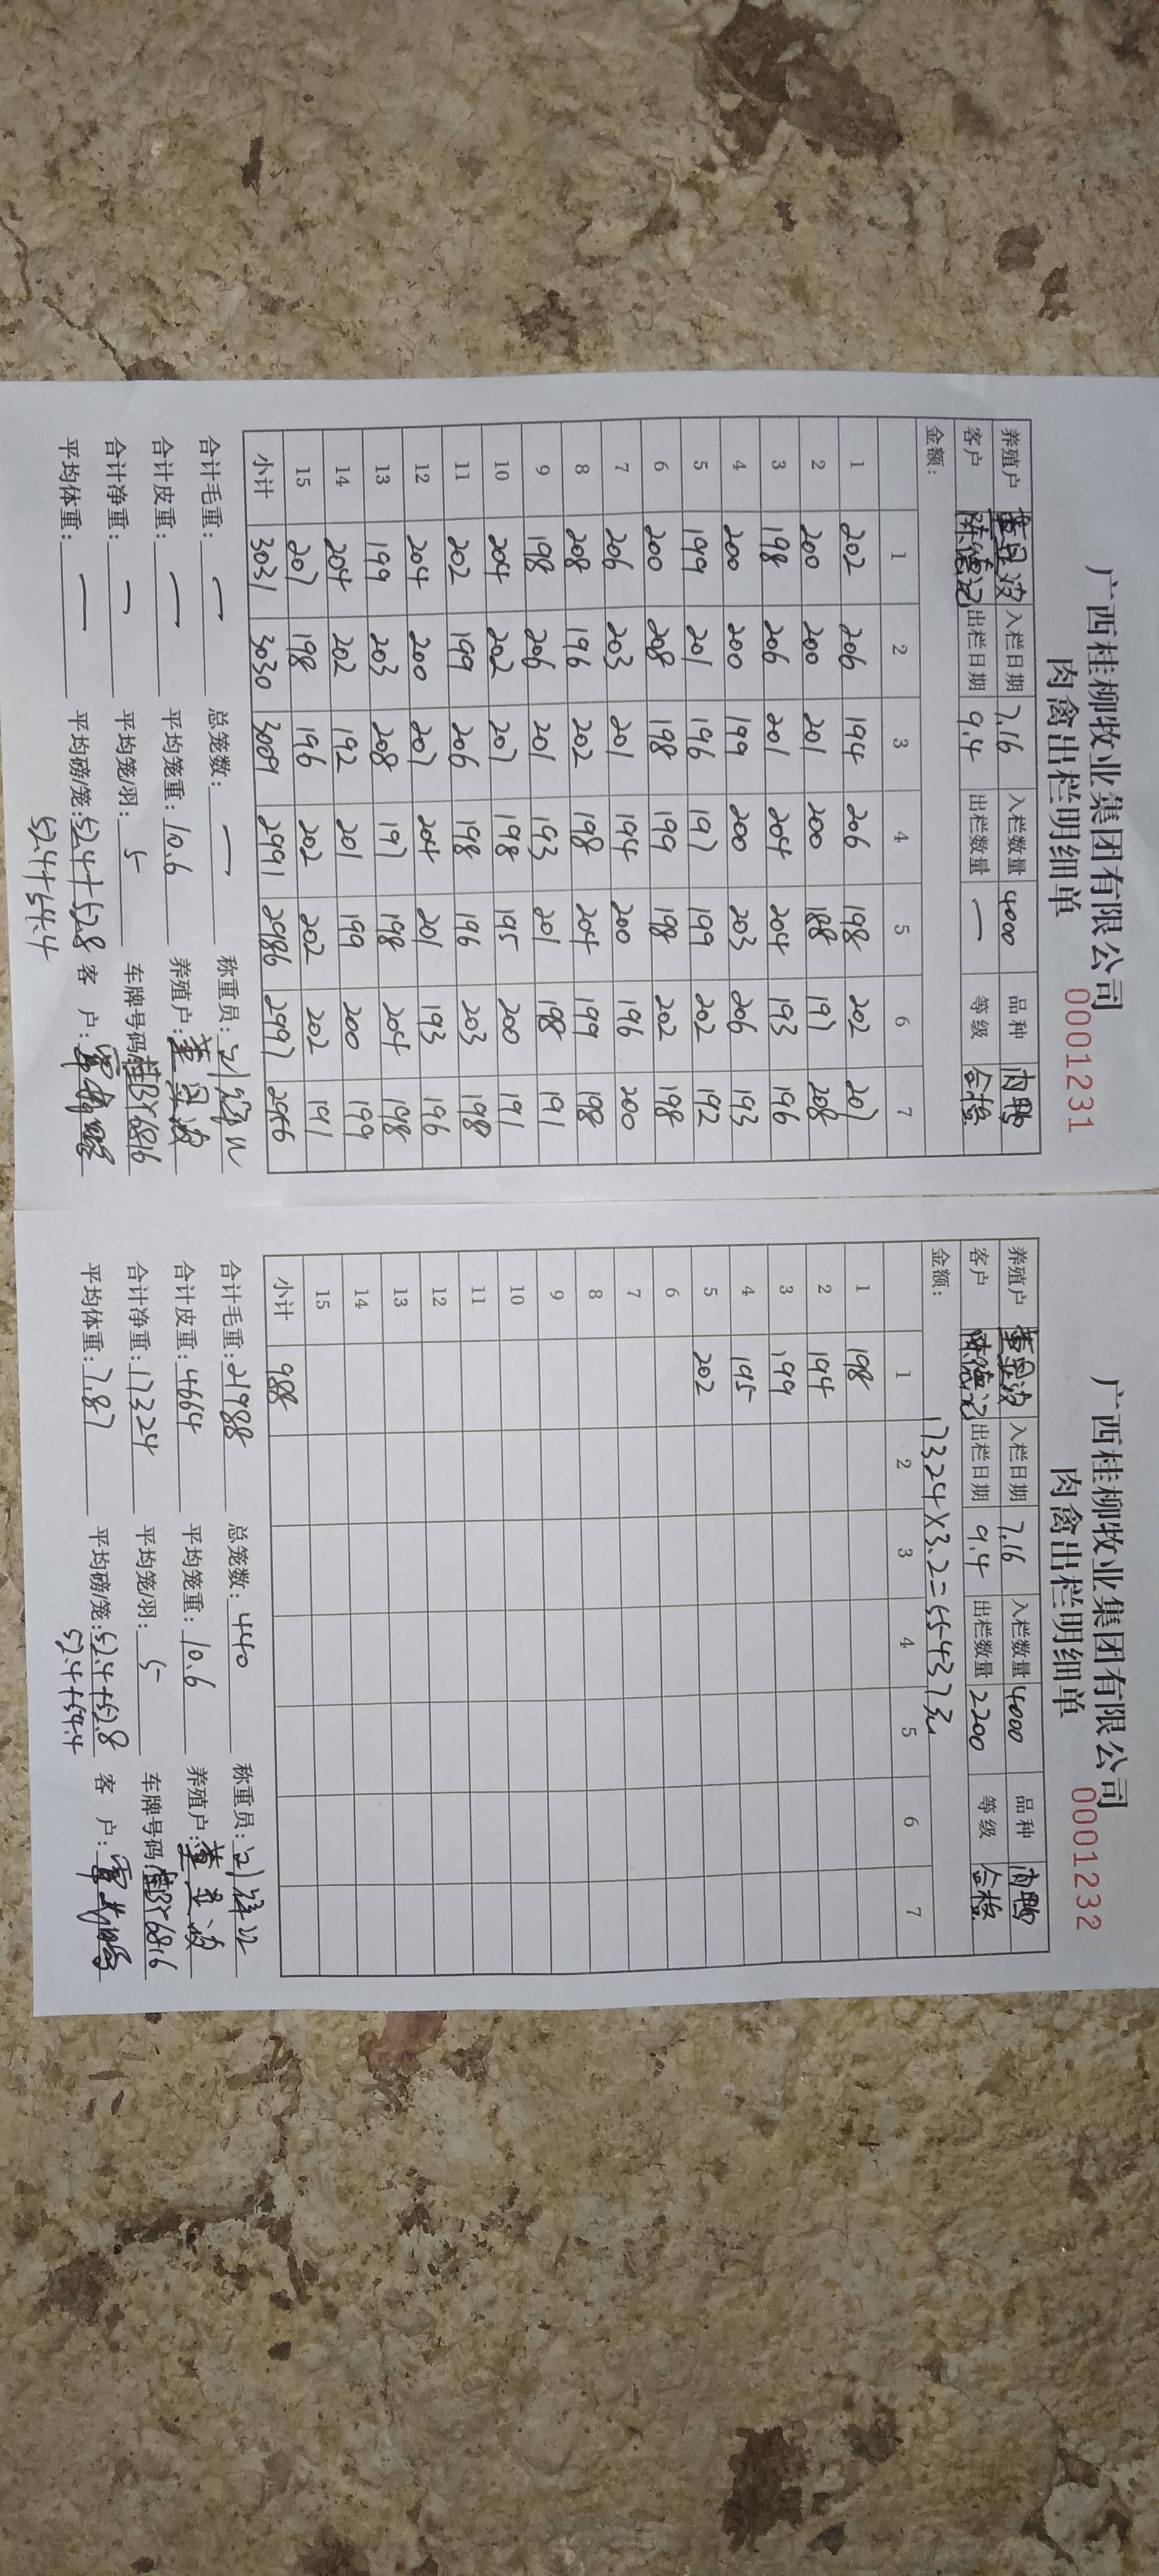 广西桂柳牧业集团有限公司
肉禽出栏明细单 0001231
养殖户 入栏日期 7.16 入栏数量 4000 品种 肉鸭
客户 陈德记 出栏日期 9.4 出栏数量 — 等级 合格
金额：
1 2 3 4 5 6 7
1 202 206 194 206 198 202 201
2 200 200 201 200 188 197 208
3 198 206 201 204 204 193 196
4 200 200 199 200 203 206 193
5 199 201 196 197 199 202 192
6 200 208 198 199 198 202 198
7 206 203 201 194 200 196 200
8 208 196 202 198 204 199 198
9 198 206 201 193 201 198 191
10 204 202 207 198 195 200 191
11 202 199 206 198 196 203 198
12 204 200 207 204 201 193 196
13 199 203 208 197 198 204 198
14 204 202 192 201 199 200 199
15 207 198 196 202 202 202 191
小计 3031 3030 3009 2991 2986 2997 2956
合计毛重：— 总笼数：— 称重员：
合计皮重：— 平均笼重：10.6 养殖户：
合计净重：— 平均笼/羽：5 车牌号码：
平均体重：— 平均磅/笼：52.4+52.8 客 户：
52.4+54.4
广西桂柳牧业集团有限公司
肉禽出栏明细单 0001232
养殖户 入栏日期 7.16 入栏数量 4000 品种 肉鸭
客户 陈德记 出栏日期 9.4 出栏数量 2200 等级 合格
金额： 17324×3.2=55437元
1 2 3 4 5 6 7
1 198
2 194
3 199
4 195
5 202
6
7
8
9
10
11
12
13
14
15
小计 988
合计毛重：21988 总笼数：440 称重员：
合计皮重：4664 平均笼重：10.6 养殖户：
合计净重：17324 平均笼/羽：5 车牌号码：
平均体重：7.87 平均磅/笼：52.4+52.8 客 户：
52.4+54.4